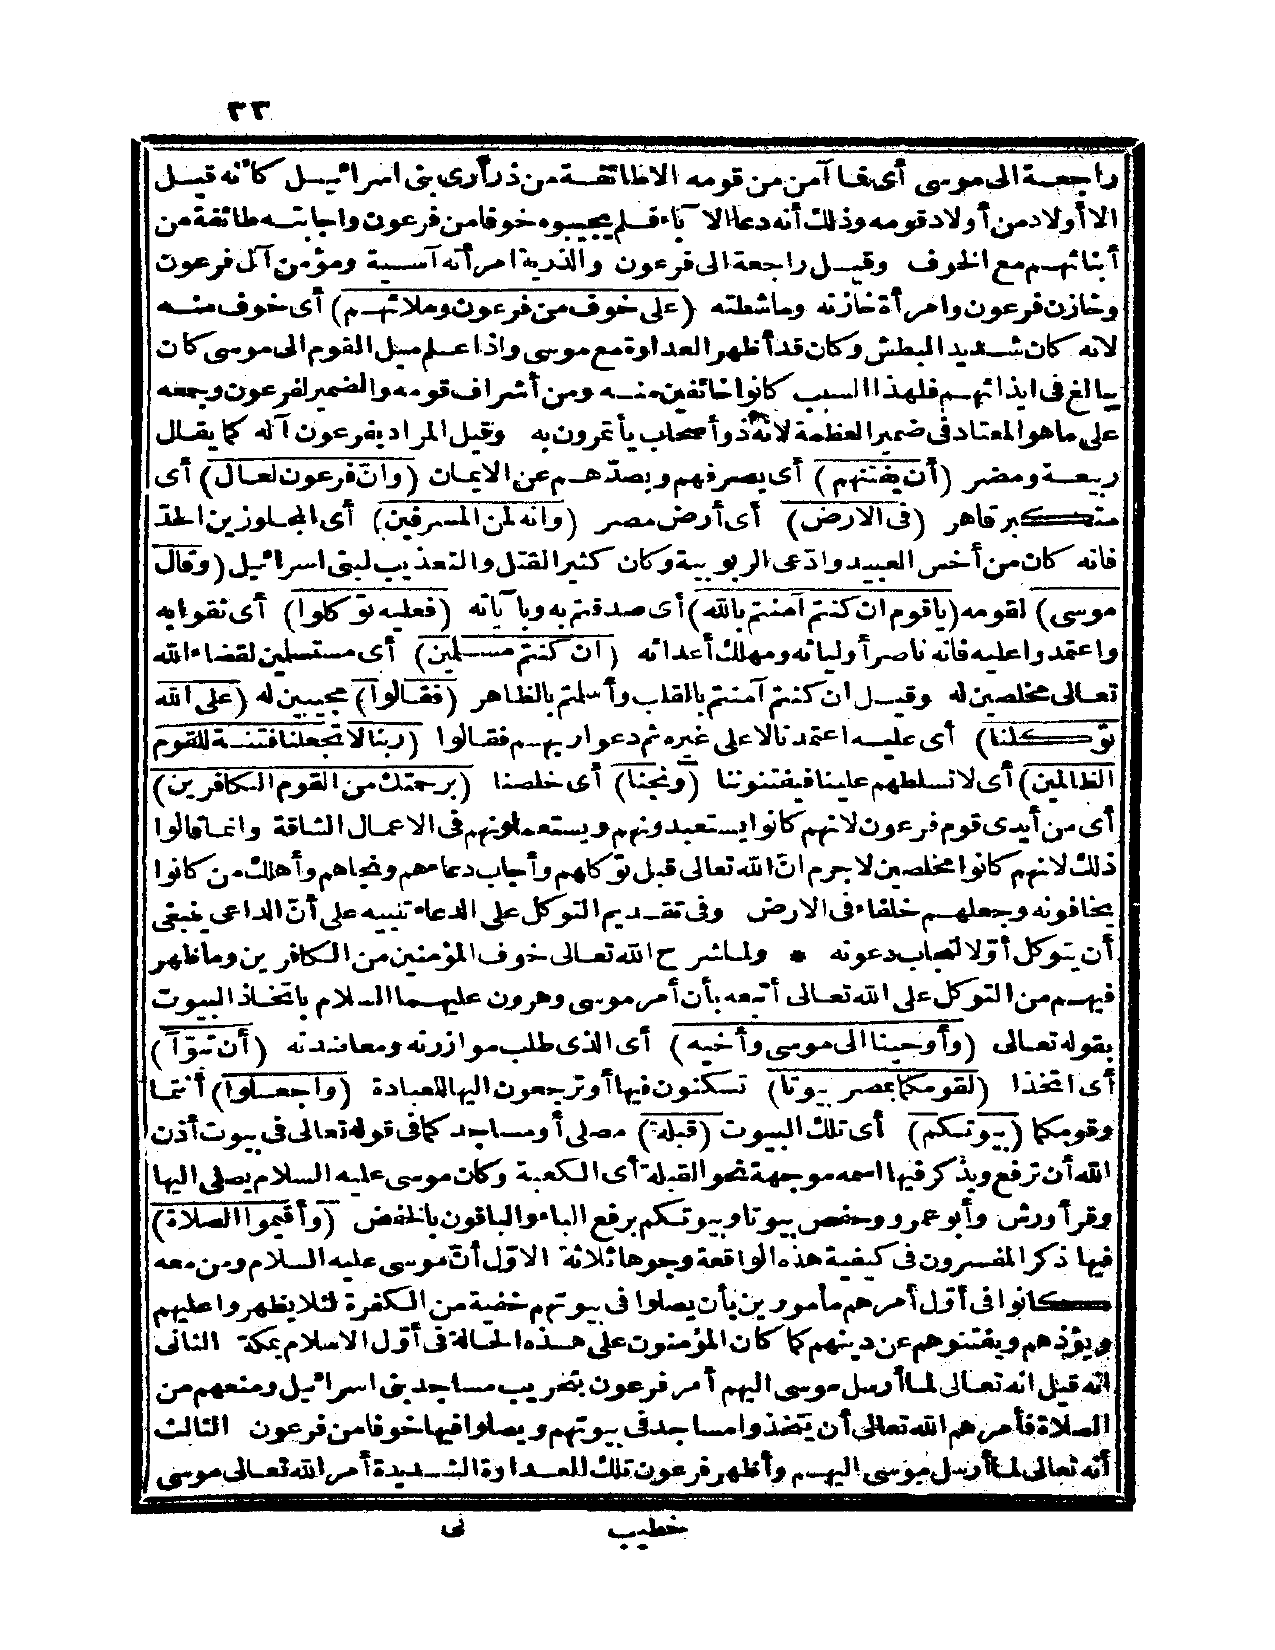 ٣٣
راجعة الى موسى أى فما آمن من قومه الاطائفة من ذرأرى بنى اسرائيل كأنه قيل
الا أولاد من أولاد قومه وذلك أنه دعا الآباء فلم يجيبوه خوفا من فرعون واجابته طائفة من
أبنائهم مع الخوف وقيل راجعة الى فرعون والذرية امرأته آسية ومؤمن آل فرعون
وخازن فرعون وامرأة خازنه وماشطته (على خوف من فرعون وملائهم) أى خوف منه
لانه كان شديد البطش وكان قد أظهر العداوة مع موسى واذا علم ميل القوم الى موسى كان
يبالغ فى ايذائهم فلهذا السبب كانوا خائفين منه ومن أشراف قومه والضمير لفرعون وجمعه
على ما هو المعتاد فى ضمير العظمة لانه ذو أصحاب يأتمرون به وقيل المراد بفرعون آله كما يقال
ربيعة ومضر (أن يفتنهم) أى يصرفهم ويصدّهم عن الايمان (وانّ فرعون لعال) أى
متكبر قاهر (فى الارض) أى أرض مصر (وانه لمن المسرفين) أى المجاوزين الحدّ
فانه كان من أخس العبيد وادّعى الربوبية وكان كثير القتل والتعذيب لبنى اسرائيل (وقال
موسى) لقومه (ياقوم ان كنتم آمنتم بالله) أى صدقتم به وبآياته (فعليه توّكلوا) أى ثقوا به
واعتمدوا عليه فانه ناصر أوليائه ومهلك أعدائه (ان كنتم مسلمين) أى مستسلمين لقضاء الله
تعالى مخلصين له وقيل ان كنتم آمنتم بالقلب وأسلمتم بالظاهر (فقالوا) مجيبين له (على الله
توّكلنا) أى عليه اعتمدنا لا على غيره ثم دعوا ربهم فقالوا (ربنا لا تجعلنا فتنة للقوم
الظالمين) أى لا تسلطهم علينا فيفتنوننا (ونجنا) أى خلصنا (برحمتك من القوم الكافرين)
أى من أيدى قوم فرعون لانهم كانوا يستعبدونهم ويستعملونهم فى الاعمال الشاقة وانما قالوا
ذلك لانهم كانوا مخلصين لاجرم انّ الله تعالى قبل توّكلهم وأجاب دعاءهم ونجاهم وأهلك من كانوا
يخافونه وجعلهم خلفاء فى الارض وفى تقديم التوكل على الدعاء تنبيه على أنّ الداعى ينبغى
أن يتوكل أوّلا لتجاب دعوته * ولما شرح الله تعالى خوف المؤمنين من الكافرين وما ظهر
فيهم من التوكل على الله تعالى أتبعه بأن أمر موسى وهرون عليهما السلام باتخاذ البيوت
بقوله تعالى (وأوحينا الى موسى وأخيه) أى الذى طلب موازرته ومعاضدته (أن تبوّآ)
أى اتخذا (لقومكما بمصر بيوتا) تسكنون فيها أو ترجعون اليها للعبادة (واجعلوا) أنتما
وقومكما (بيوتكم) أى تلك البيوت (قبلة) مصلى أو مساجد كما فى قوله تعالى فى بيوت أذن
الله أن ترفع ويذكر فيها اسمه موجهة نحو القبلة أى الكعبة وكان موسى عليه السلام يصلى اليها
وقرأ ورش وأبو عمرو وحفص بيوتا وبيوتكم برفع الباء والباقون بالخفض (وأقيموا الصلاة)
فيها ذكر المفسرون فى كيفية هذه الواقعة وجوها ثلاثة الاوّل أنّ موسى عليه السلام ومن معه
كانوا فى أوّل أمرهم مأمورين بأن يصلوا فى بيوتهم خفية من الكفرة لئلا يظهروا عليهم
ويؤذهم ويفتنوهم عن دينهم كما كان المؤمنون على هذه الحالة فى أوّل الاسلام بمكة الثانى
انه قيل انه تعالى لما أرسل موسى اليهم أمر فرعون بتخريب مساجد بنى اسرائيل ومنعهم من
الصلاة فأمرهم الله تعالى أن يتخذوا مساجد فى بيوتهم ويصلوا فيها خوفا من فرعون الثالث
أنه تعالى لما أرسل موسى اليهم وأظهر فرعون تلك العداوة الشديدة أمر الله تعالى موسى
خطيب نى